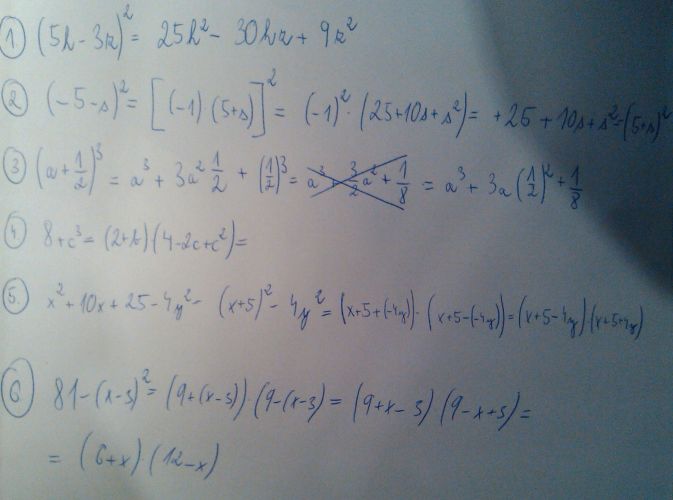 1) (5h - 3k)² = 25h² - 30hk + 9k²
2) (-5-s)² = [(-1)(5+s)]² = (-1)² · (25+10s+s²) = +25 + 10s + s² = (5+s)²
3) (a + 1/2)³ = a³ + 3a² 1/2 + (1/2)³ = a³ + 3/2 a² + 1/8 = a³ + 3a (1/2)² + 1/8
4) 8+c³ = (2+c)(4-2c+c²) =
5. x² + 10x + 25 - 4y² - (x+5)² - 4y² = (x+5+(-4y)) · (x+5-(-4y)) = (x+5-4y) · (x+5+4y)
6) 81 - (x-3)² = (9+(x-3)) · (9-(x-3) = (9+x-3) (9-x+3) =
= (6+x) · (12-x)